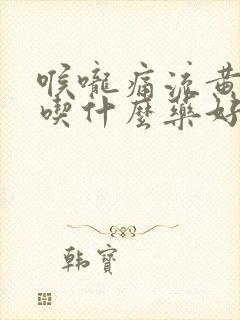 喉嚨痛流黃
喫什麼藥好
韩寶